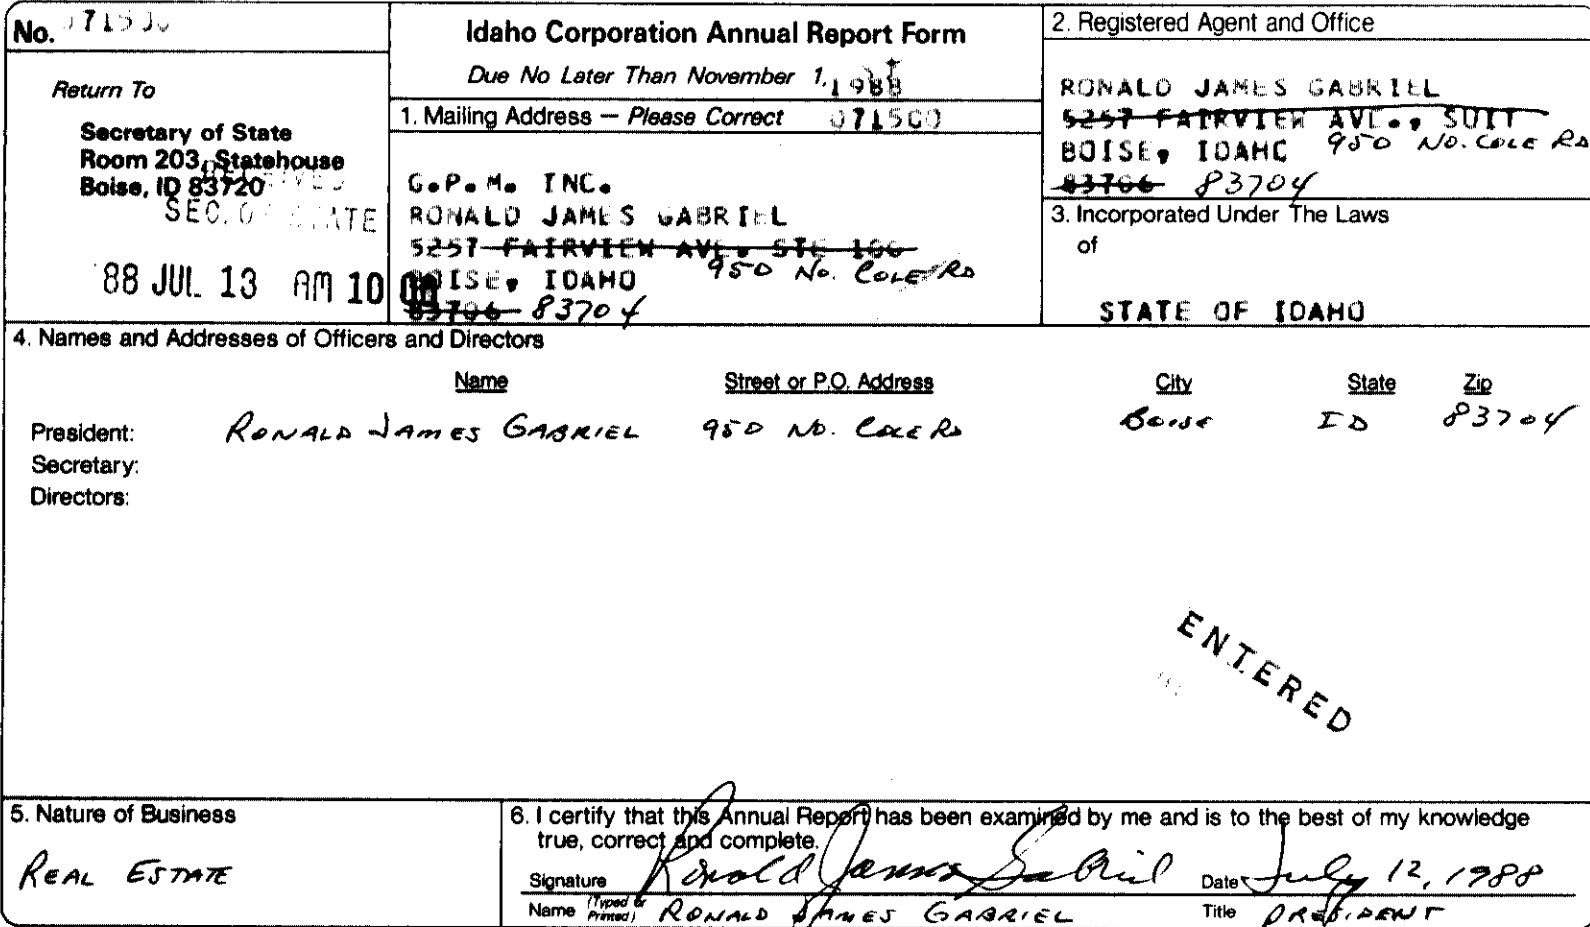 No. 071500
Return To
Secretary of State
Room 203, Statehouse
Boise, ID 83720
RECEIVED
SEC. OF STATE
88 JUL 13 AM 10
Idaho Corporation Annual Report Form
Due No Later Than November 1, 1988
1. Mailing Address — Please Correct 071500
G.P.M. INC.
RONALD JAMES GABRIEL
5257 FAIRVIEW AVE. STE 100
950 No. COLE RD
BOISE, IDAHO
83706 83704
2. Registered Agent and Office
RONALD JAMES GABRIEL
5257 FAIRVIEW AVE., SUIT
BOISE, IDAHO 950 No. COLE RD
83706 83704
3. Incorporated Under The Laws
of
STATE OF IDAHO
4. Names and Addresses of Officers and Directors
Name Street or P.O. Address City State Zip
President: RONALD JAMES GABRIEL 950 No. COLE RD BOISE ID 83704
Secretary:
Directors:
ENTERED
5. Nature of Business
REAL ESTATE
6. I certify that this Annual Report has been examined by me and is to the best of my knowledge
true, correct and complete.
Signature Ronald James Gabriel Date July 12, 1988
Name (Typed or Printed) RONALD JAMES GABRIEL Title PRESIDENT